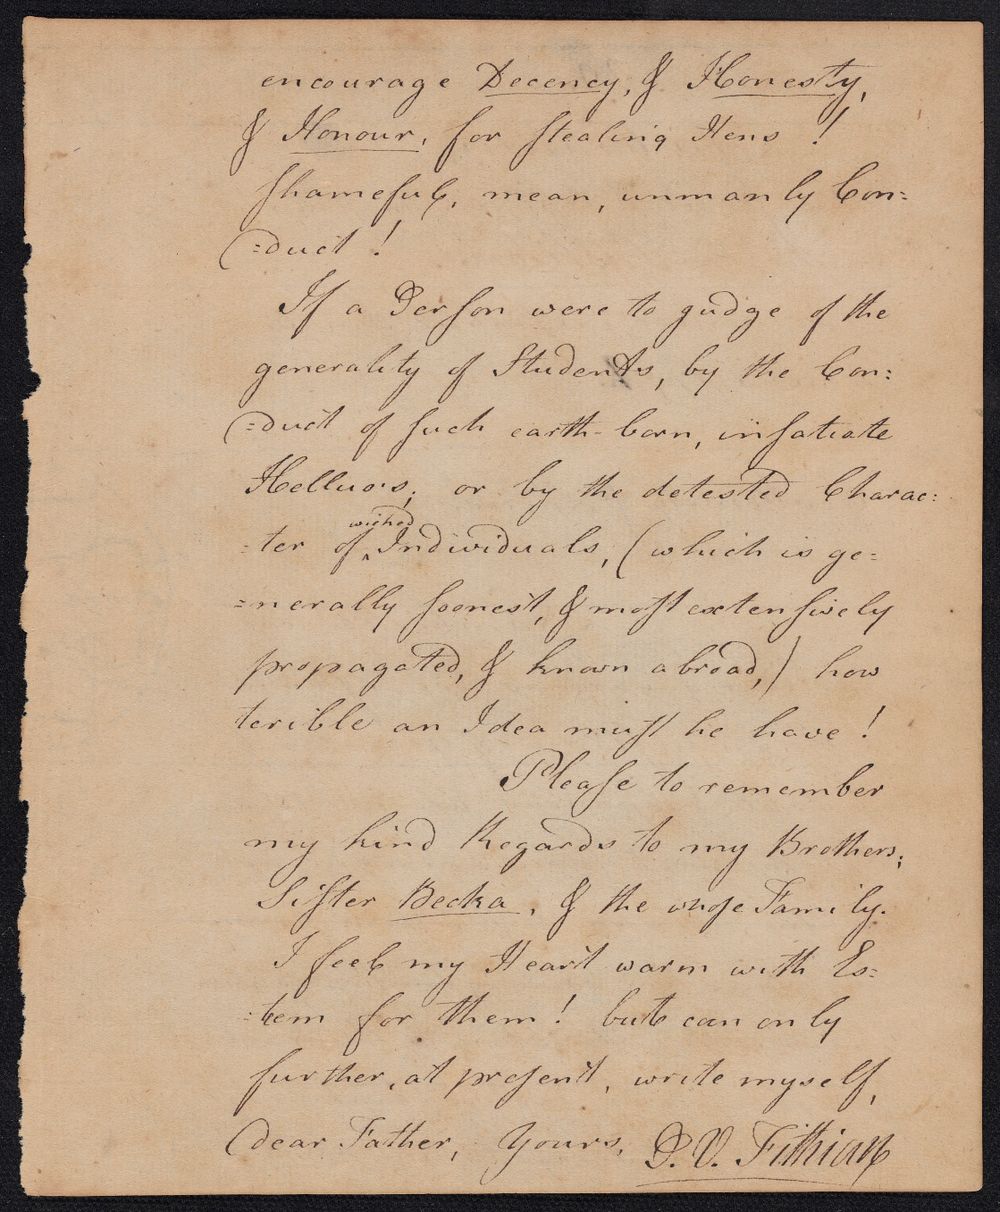 encourage Decency, & Honesty,
& Honour, for stealing Hens !
shameful, mean, unmanly Con=
=duct !
If a Person were to gudge of the
generality of Students, by the Con=
=duct of such earth-born, insatiate
Helluo's, or by the detested Charac=
wicked
=ter of ^ Individuals, (which is ge=
=nerally soonest, & most extensively
propagated, & known abroad,) how
terible an Idea must he have !
Please to remember
my kind Regards to my Brothers;
Sister Becka, & the whole Family.
I feel my Heart warm with Es=
=tem for them ! but can only
further, at present, write myself,
dear Father, Yours, P. V. Fithian